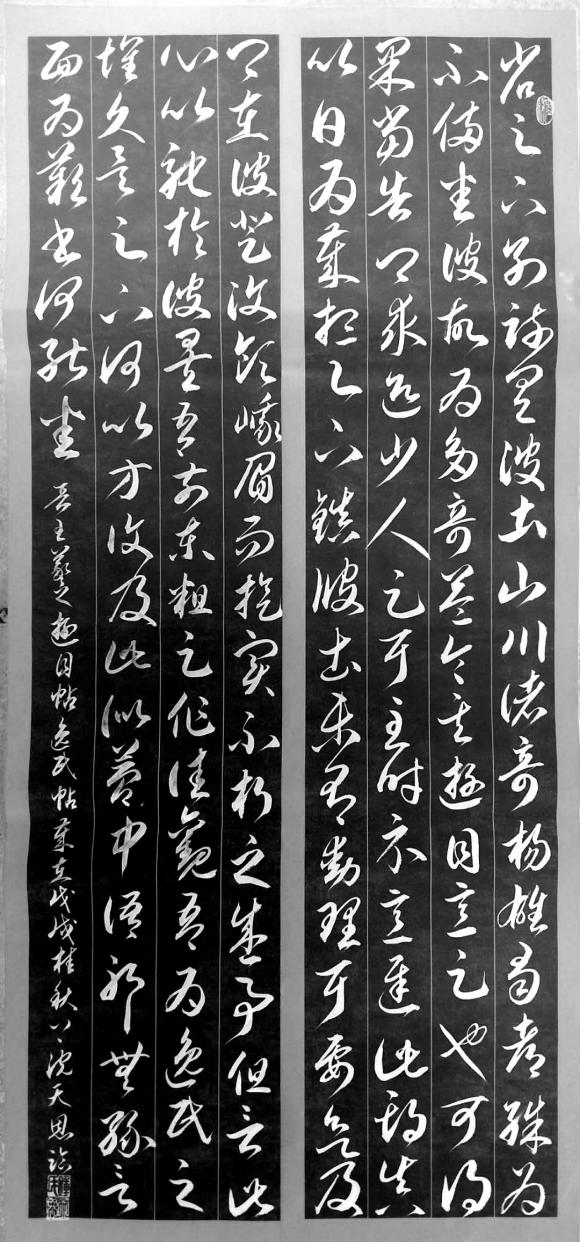 省足下别疏具彼土山川诸奇杨雄蜀都殊为
不備悉彼故为多奇益令其遊目意足也可得
果当告卿求迎少人足耳至时示意遲此期真
以日为歲想足下鎮彼土未有動理耳要欲及
卿在彼登汶領峨眉而旋实不朽之盛事但言此
心以馳於彼矣吾前东粗足作佳觀吾为逸民之
懷久矣足下何以方復及此似夢中语耶無缘言
面为歎书何能悉 晋王羲之遊目帖逸民帖歲在戊戌桂秋沈天思臨